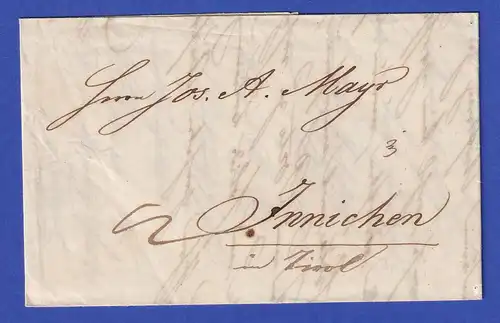 Herrn Jos. A. Mayr
3
Innichen
in Tirol